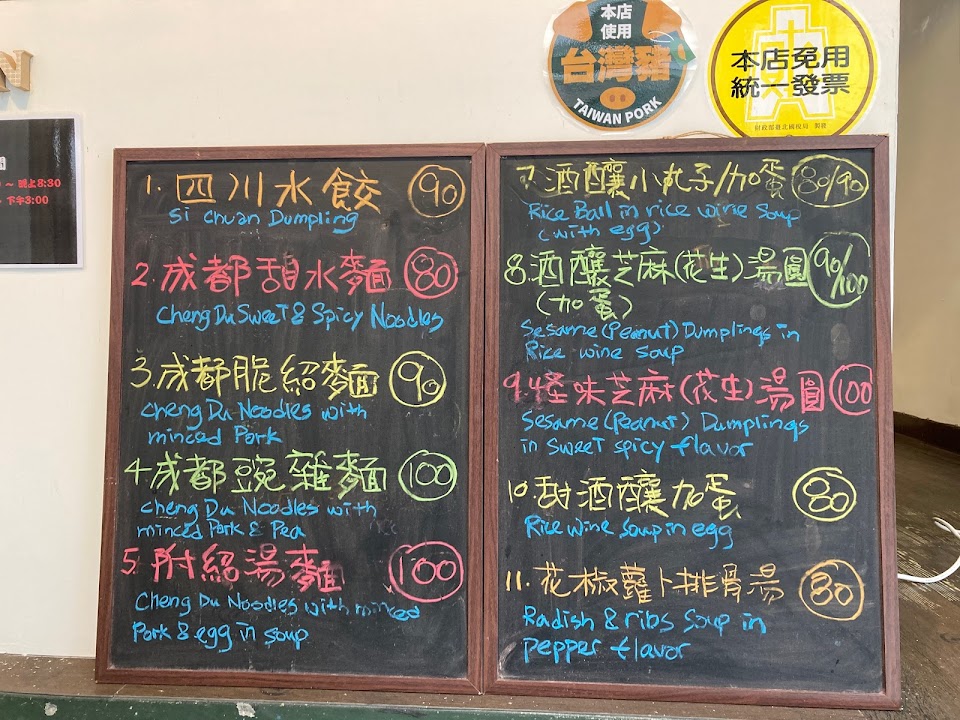 N
本店
使用
台灣豬
TAIWAN PORK
本店免用
統一發票
財政部臺北國稅局 製贈
~ 晚上8:30
~ 下午3:00
1. 四川水餃 90
Si chuan Dumpling
2. 成都甜水麵 80
cheng Du Sweet & Spicy Noodles
3. 成都脆紹麵 90
cheng Du Noodles with
minced Pork
4 成都豌雜麵 100
cheng Du Noodles with
minced Pork & Pea
5. 附紹湯麵 100
Cheng Du Noodles with minced
Pork & egg in soup
7. 酒釀小丸子/加蛋 80/90
Rice Ball in rice wine soup
(with egg)
8. 酒釀芝麻(花生)湯圓 90/100
(加蛋)
Sesame (Peanut) Dumplings in
Rice-wine soup
9. 怪味芝麻(花生)湯圓 100
Sesame (Peanut) Dumplings
in sweet spicy flavor
10. 甜酒釀加蛋 80
Rice wine soup in egg
11. 花椒蘿蔔排骨湯 80
Radish & ribs soup in
pepper flavor